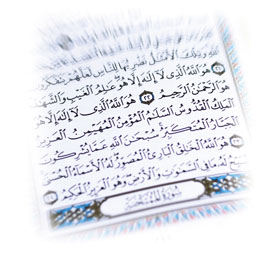 وَتِلْكَ الْأَمْثَالُ نَضْرِبُهَا لِلنَّاسِ لَعَلَّهُمْ يَتَفَكَّرُونَ
هُوَ اللَّهُ الَّذِي لَا إِلَٰهَ إِلَّا هُوَ عَالِمُ الْغَيْبِ وَالشَّهَادَةِ
هُوَ الرَّحْمَٰنُ الرَّحِيمُ ٢٢ هُوَ اللَّهُ الَّذِي لَا إِلَٰهَ إِلَّا هُوَ
الْمَلِكُ الْقُدُّوسُ السَّلَامُ الْمُؤْمِنُ الْمُهَيْمِنُ الْعَزِيزُ
الْجَبَّارُ الْمُتَكَبِّرُ سُبْحَانَ اللَّهِ عَمَّا يُشْرِكُونَ
هُوَ اللَّهُ الْخَالِقُ الْبَارِئُ الْمُصَوِّرُ لَهُ الْأَسْمَاءُ الْحُسْنَىٰ
يُسَبِّحُ لَهُ مَا فِي السَّمَاوَاتِ وَالْأَرْضِ وَهُوَ الْعَزِيزُ الْحَكِيمُ
سُورَةُ الْمُمْتَحَنَةِ